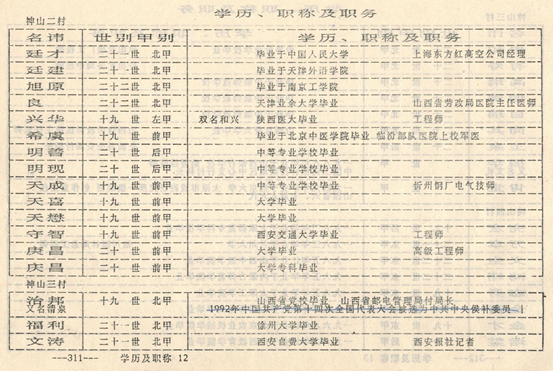 学历、职称及职务
神山二村
名讳 世别甲别 学历、职称及职务
廷才 二十一世 北甲 毕业于中国人民大学 上海东方红高空公司经理
廷建 二十一世 北甲 毕业于天津外语学院
旭原 二十二世 北甲 毕业于南京工学院
良 二十二世 北甲 天津业余大学毕业 山西省劳改局医院主任医师
兴华 十九世 左甲 双名和兴 陕西医大毕业 工程师
希虞 十九世 前甲 毕业于北京中医学院毕业 临汾部队医院上校军医
明 二十世 后甲 中等专业学校毕业
明现 二十世 后甲 中等专业学校毕业
天成 十九世 前甲 中等专业学校毕业 忻州钢厂电气技师
天 十九世 前甲 大学毕业
天懋 十九世 前甲 大学毕业
守智 十九世 前甲 西安交通大学毕业 工程师
庚昌 二十世 前甲 大学毕业 高级工程师
庆昌 二十世 前甲 大学专科毕业
神山三村
治邦 十九世 北甲 山西省党校毕业 山西省邮电管理局付局长
又名清泉 1992年中国共产党第十四次全国代表大会被选为中共中央候补委员
福利 二十一世 北甲 徐州大学毕业
文涛 二十一世 北甲 西安自费大学毕业 西安报社记者
---311--- 学历及职称 12